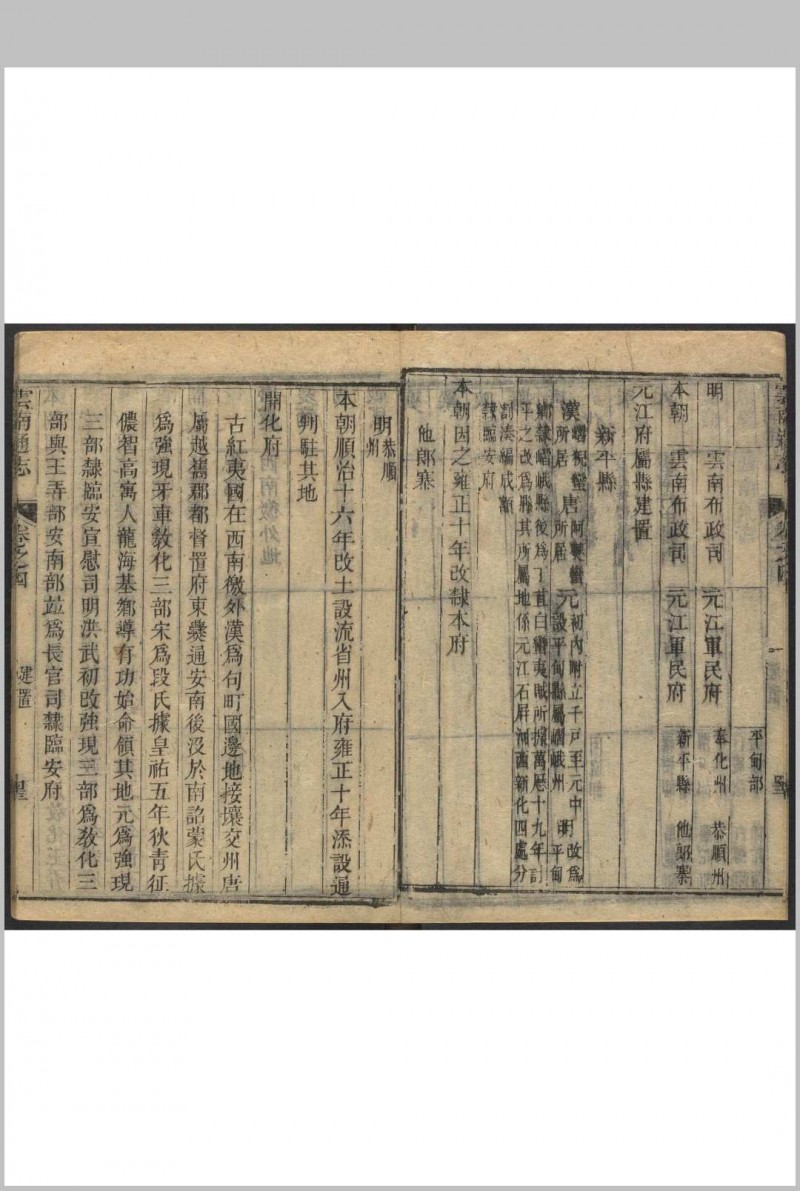 雲南通志 卷之四 一
平甸部
明 雲南布政司 元江軍民府 奉化州 恭順州
本朝 雲南布政司 元江軍民府 新平縣 他郎寨
元江府屬縣建置
新平縣
漢 所居 唐 阿僰蠻所居 元 初內附立千戸至元中設平甸縣屬嶍峨州 明 改爲平甸
鄉隸嶍峨縣後爲丁苴白蠻夷賊所據萬曆十九年討
平之改爲縣其所屬地係元江石屏河西新化四處分
割湊編成漸
隸臨安府
本朝因之雍正十年改隸本府
他郎寨
明 恭順州
本朝順治十六年改土設流省州入府雍正十年添設通
判駐其地
開化府
古紅夷國在西南徼外漢爲句町國邊地接壤交州唐
屬越舊郡都督置府東爨通安南後沒於南詔蒙氏據
爲強現牙車教化三部宋爲段氏據皇祐五年狄青征
儂智高寓人龍海基鄉導有功始命領其地元爲強現
三部隸臨安宣慰司明洪武初改強現三部爲教化三
部與王弄部安南部竝爲長官司隸臨安府
雲南通志 卷之四 建置